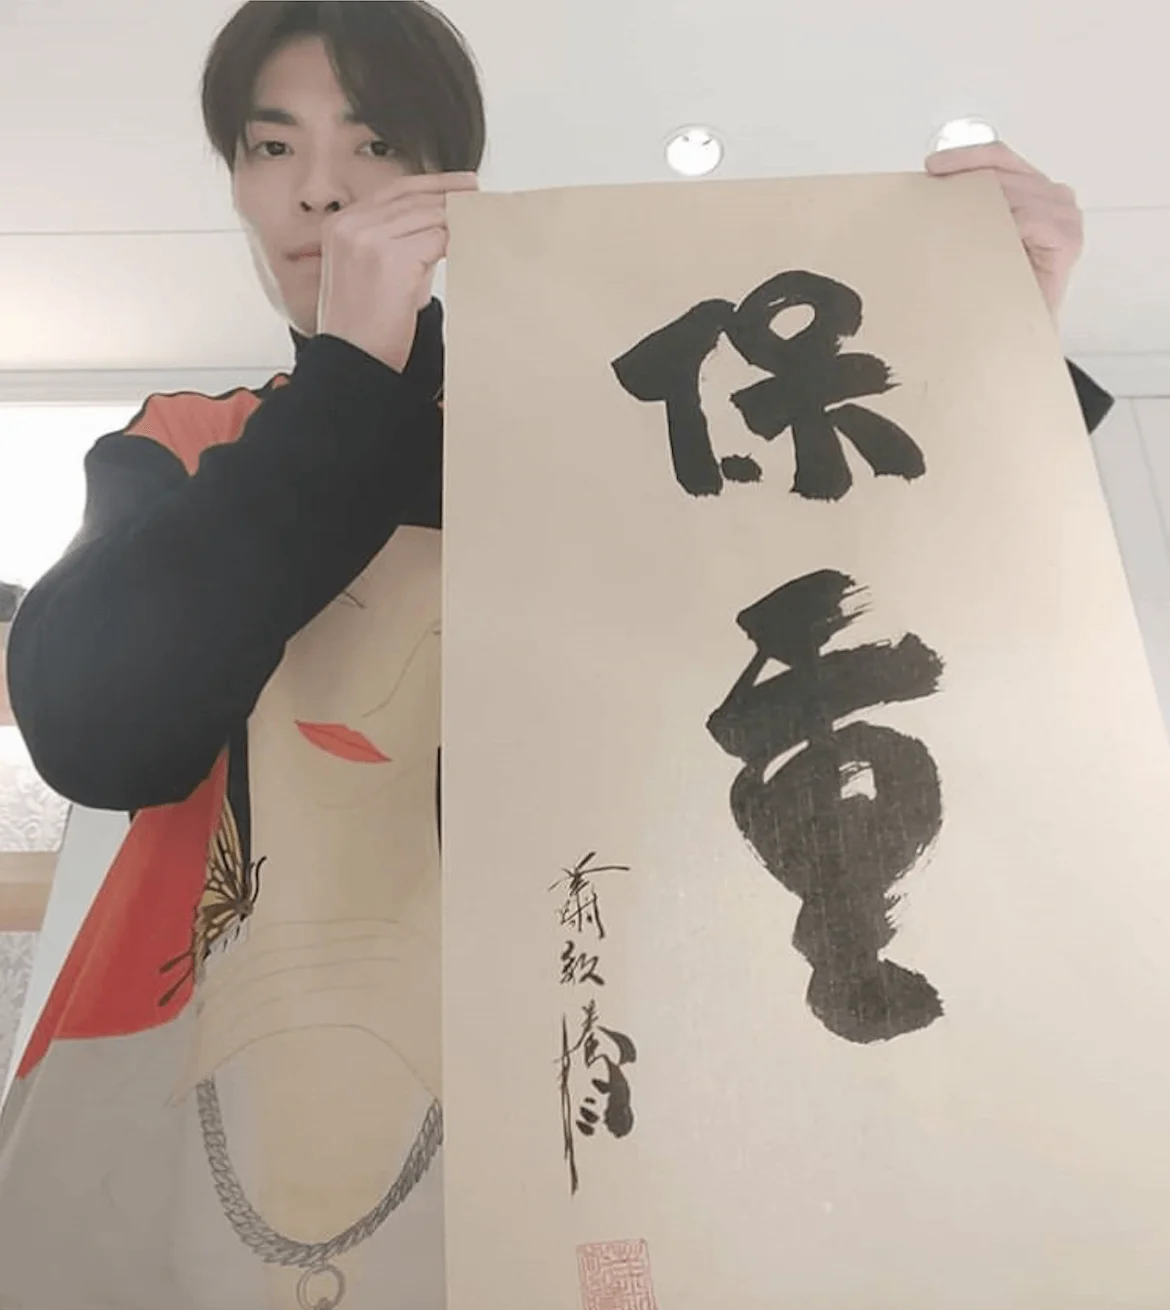 保重
蕭敬騰